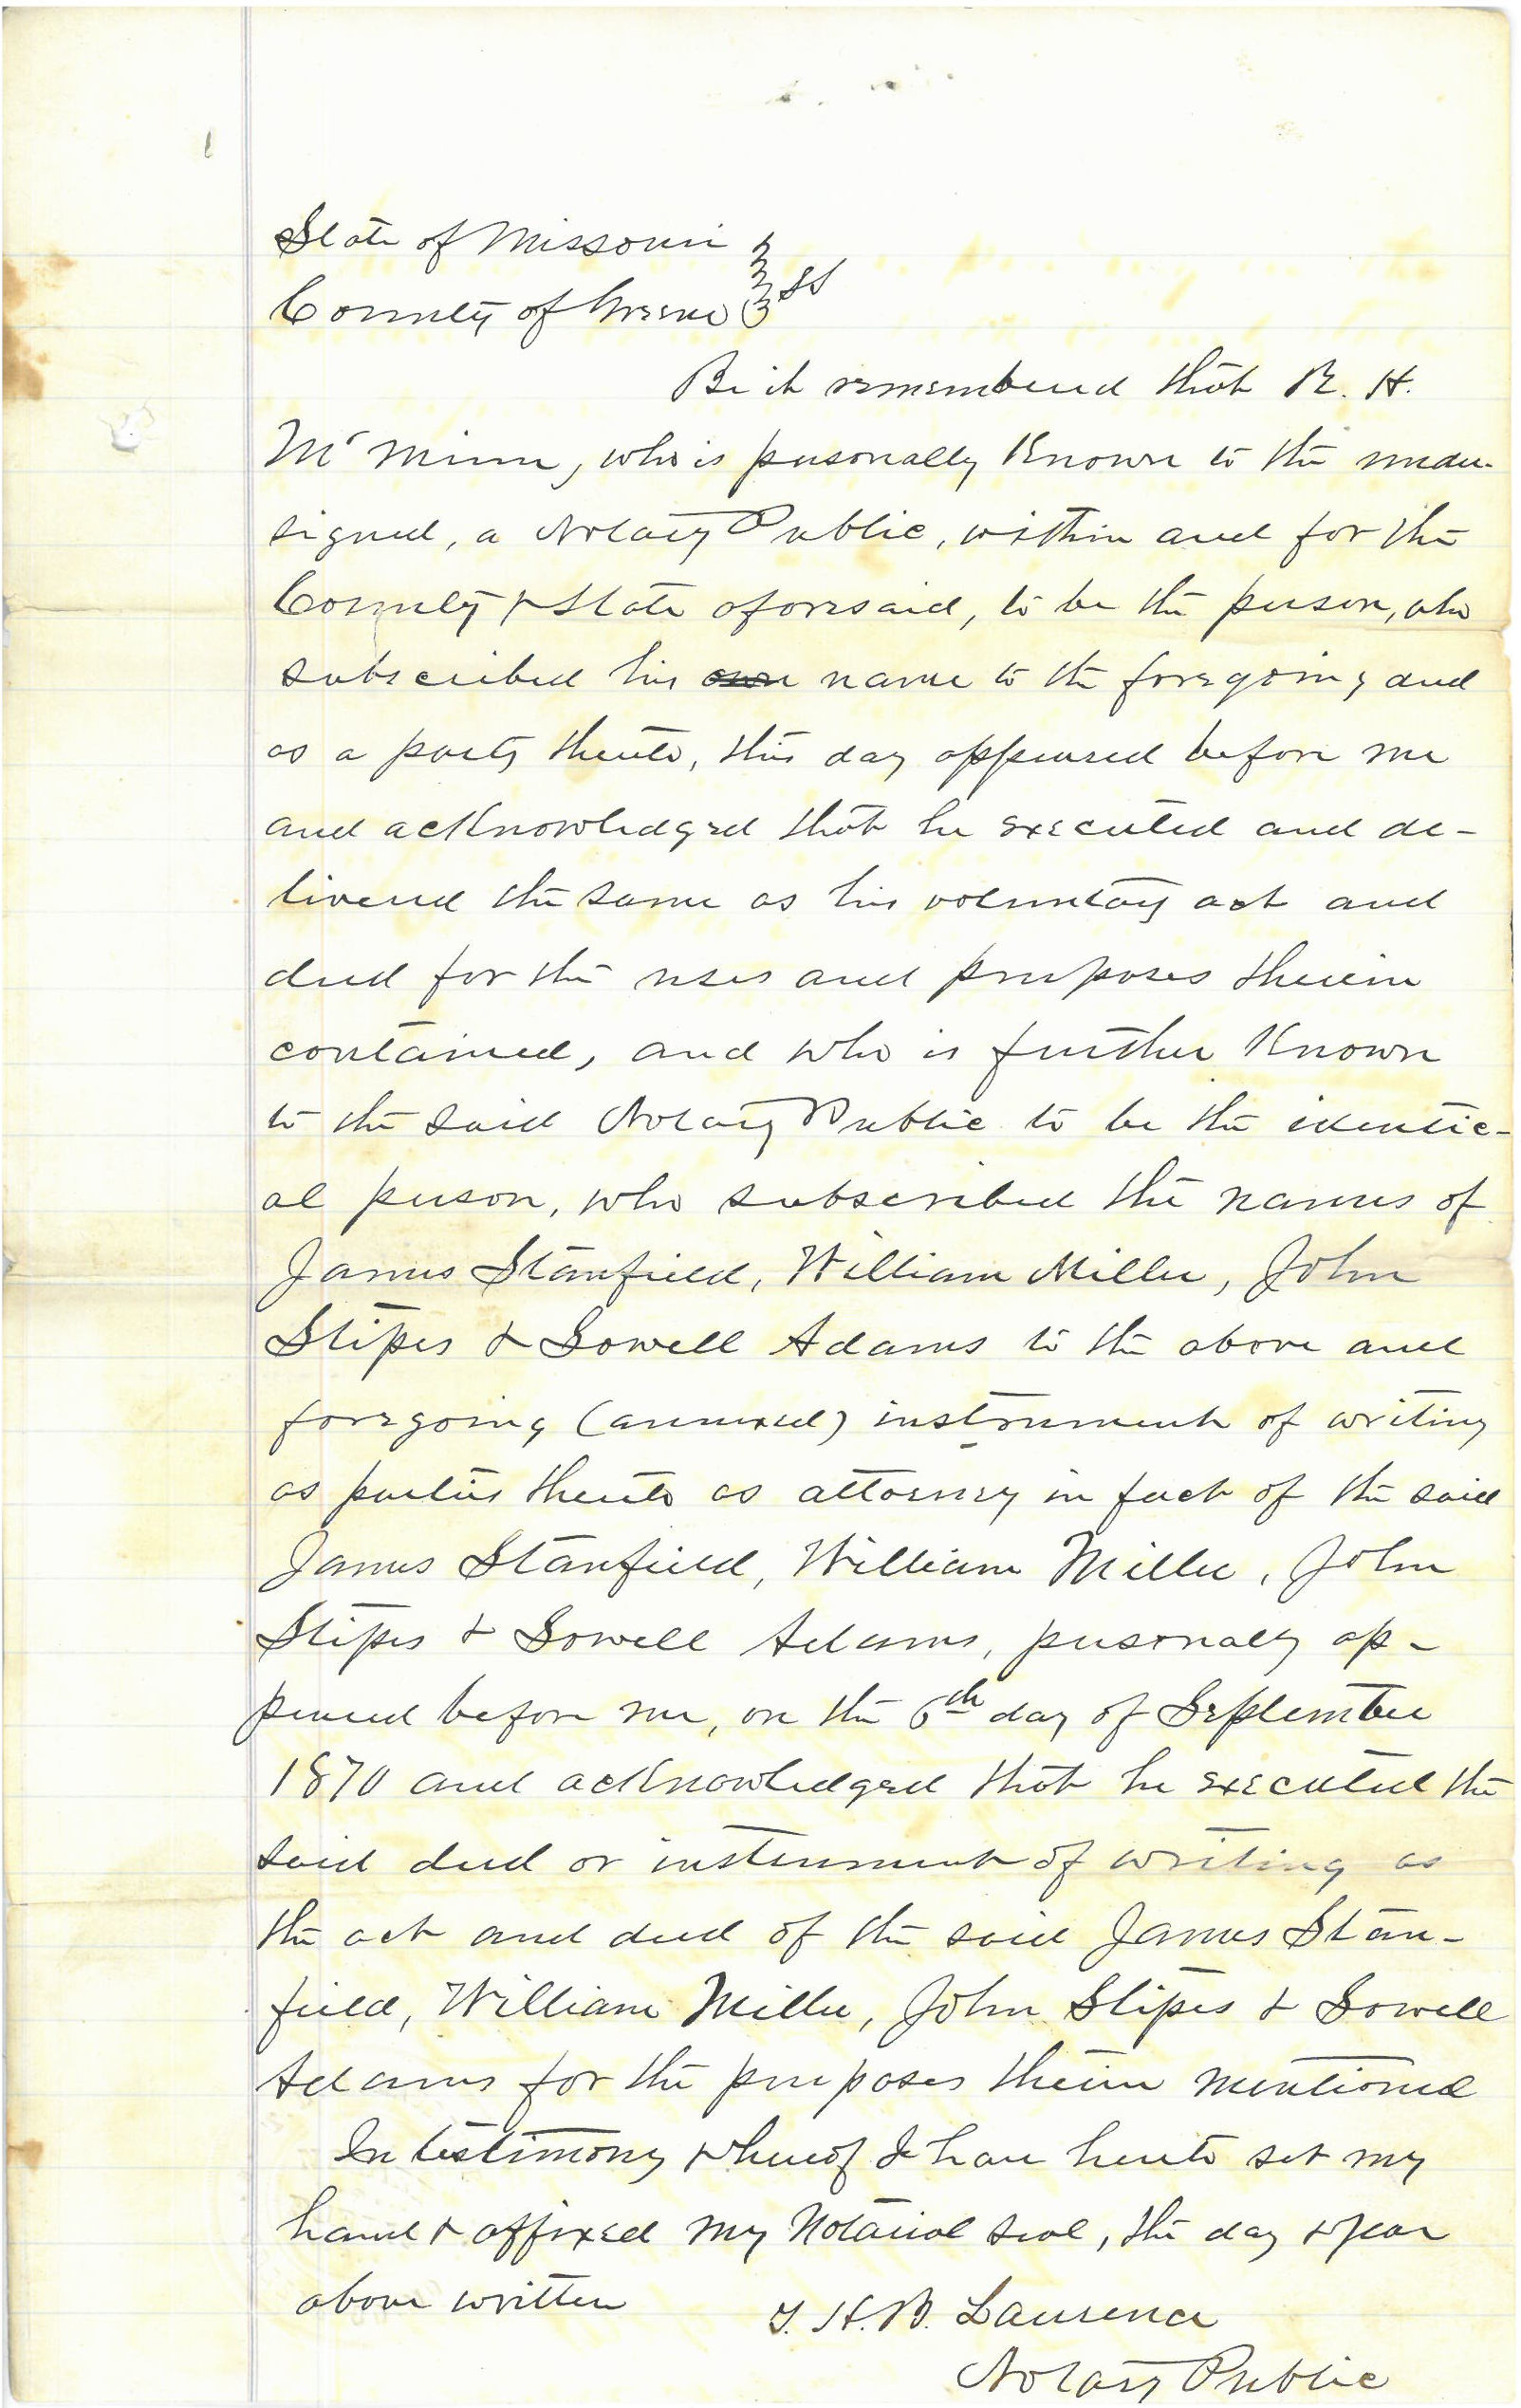 State of Missouri }
County of Greene } SS
Be it remembered that R. H.
McMinn, who is personally Known to the under-
signed, a Notary Public, within and for the
County & State aforesaid, to be the person, who
subscribed his own name to the foregoing and
as a party thereto, this day appeared before me
and acknowledged that he executed and de-
livered the same as his voluntary act and
deed for the uses and purposes therein
contained, and who is further Known
to the said Notary Public to be the identic-
al person, who subscribed the names of
James Stanfield, William Miller, John
Stipes & Sowell Adams to the above and
foregoing (annexed) instrument of writing
as parties thereto as attorney in fact of the said
James Stanfield, William Miller, John
Stipes & Sowell Adams, personally ap-
peared before me, on the 6th day of September
1870 and acknowledged that he executed the
said deed or instrument of writing as
the act and deed of the said James Stan-
field, William Miller, John Stipes & Sowell
Adams for the purposes therein mentioned
In testimony whereof I have hereto set my
hand & affixed my Notarial seal, the day & year
above written
J. H. B. Laurence
Notary Public